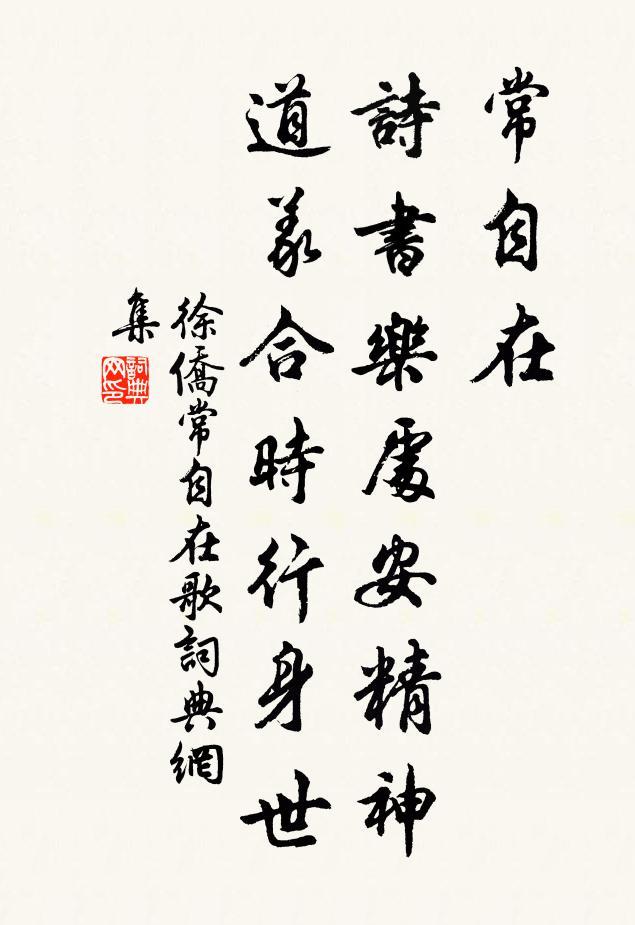 常自在
詩書樂處安精神
道義合時行身世
徐僑常自在歌詞典網
集
詞典
网印